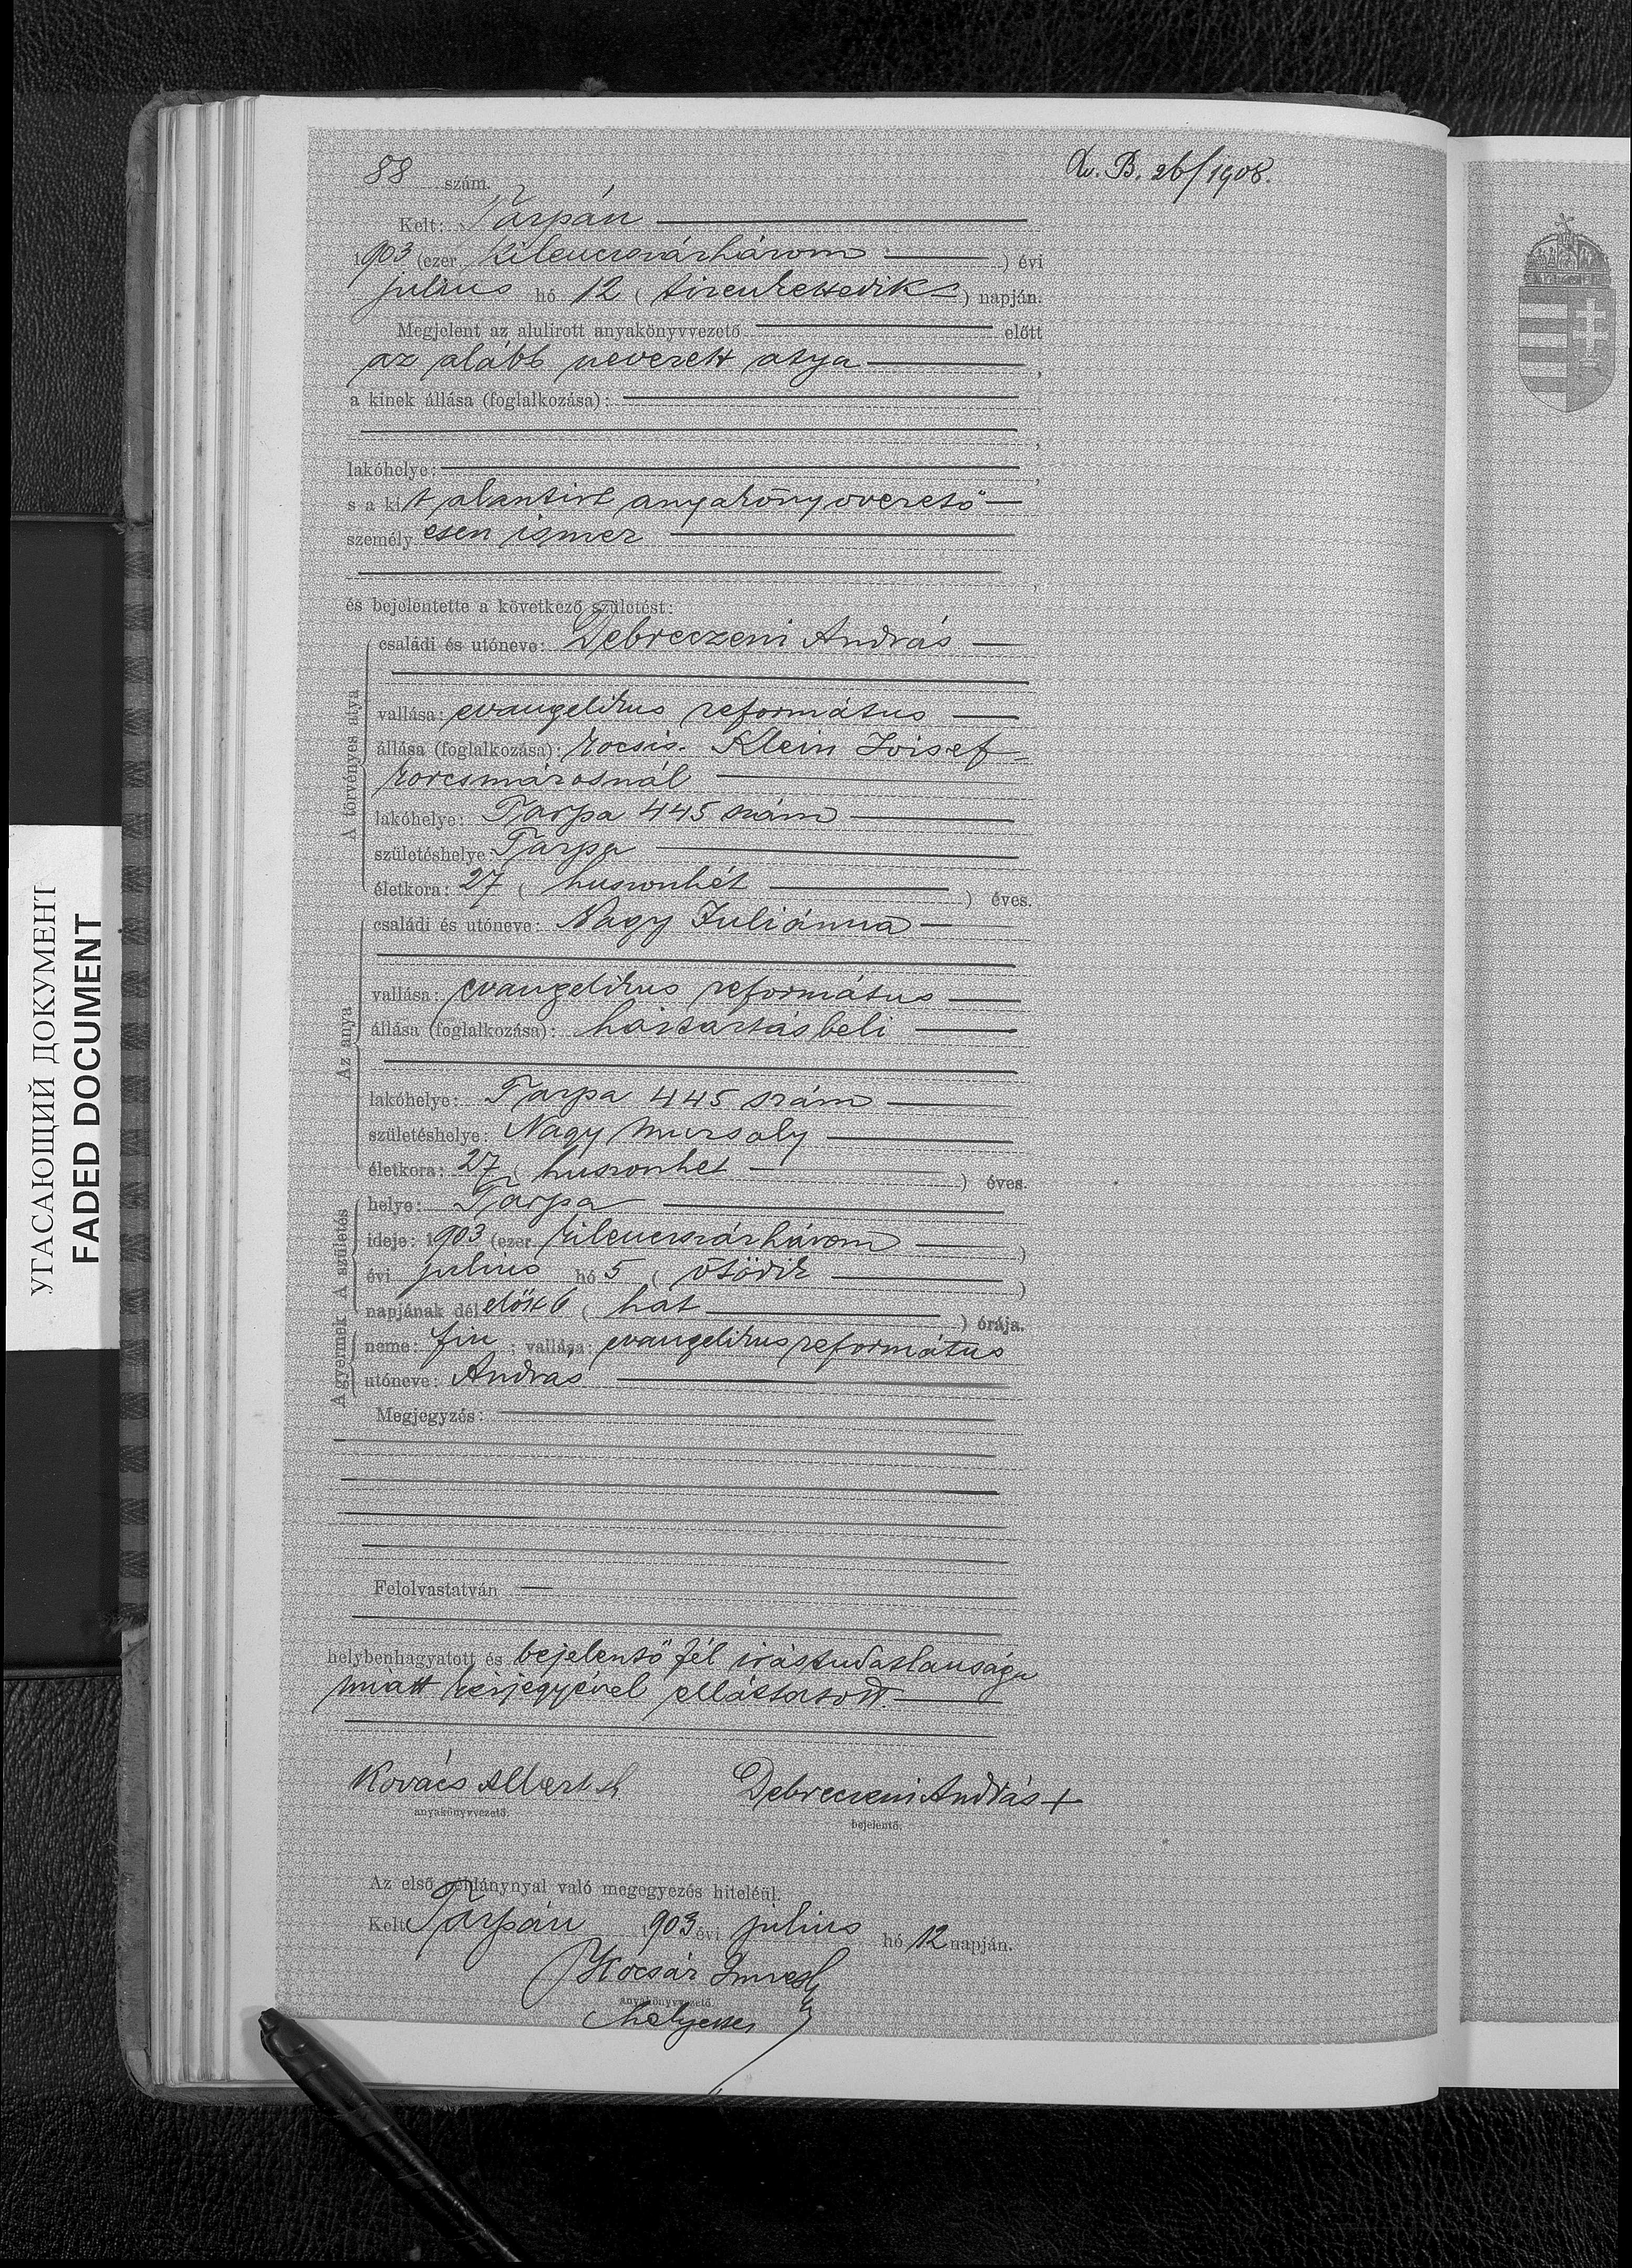 88 szám.
Kelt: Tarpán
1903 (ezer kilenczszázhárom) évi
julius hó 12 (tizenkettedik) napján.
Megjelent az alulirott anyakönyvvezető előtt
az alább nevezett atya,
a kinek állása (foglalkozása):
,
lakóhelye: ,
s a kit alantirt anyakönyvvezető
személyesen ismer
,
és bejelentette a következő születést:
A törvényes atya
családi és utóneve: Debreczeni András
vallása: evangelikus református
állása (foglalkozása): kocsis. Klein Jóisef
korcsmárosnál
lakóhelye: Tarpa 445 szám
születéshelye: Tarpa
életkora: 27 (huszonhét) éves.
Az anya
családi és utóneve: Nagy Juliánna
vallása: evangelikus református
állása (foglalkozása): háztartásbeli
lakóhelye: Tarpa 445 szám
születéshelye: Nagy Muzsaly
életkora: 27 (huszonhet) éves.
A születés
helye: Tarpa
ideje: 1903 (ezer kilenczszázhárom)
évi julius hó 5 (ötödik)
napjának délelőtt 6 (hat) órája.
A gyermek
neme: fiu; vallása: evangelikus református
utóneve: András
Megjegyzés:
Felolvastatván
helybenhagyatott és bejelentő fél irástudatlansága
miatt kézjegyével elláttatott.
Kovács Albert
anyakönyvvezető.
Debreczeni András +
bejelentő.
Az első példánynyal való megegyezés hiteléül.
Kelt Tarpán 1903 évi julius hó 12 napján.
Kocsár Imre
anyakönyvvezető
helyettes
B. 26/1908.
УГАСАЮЩИЙ ДОКУМЕНТ
FADED DOCUMENT